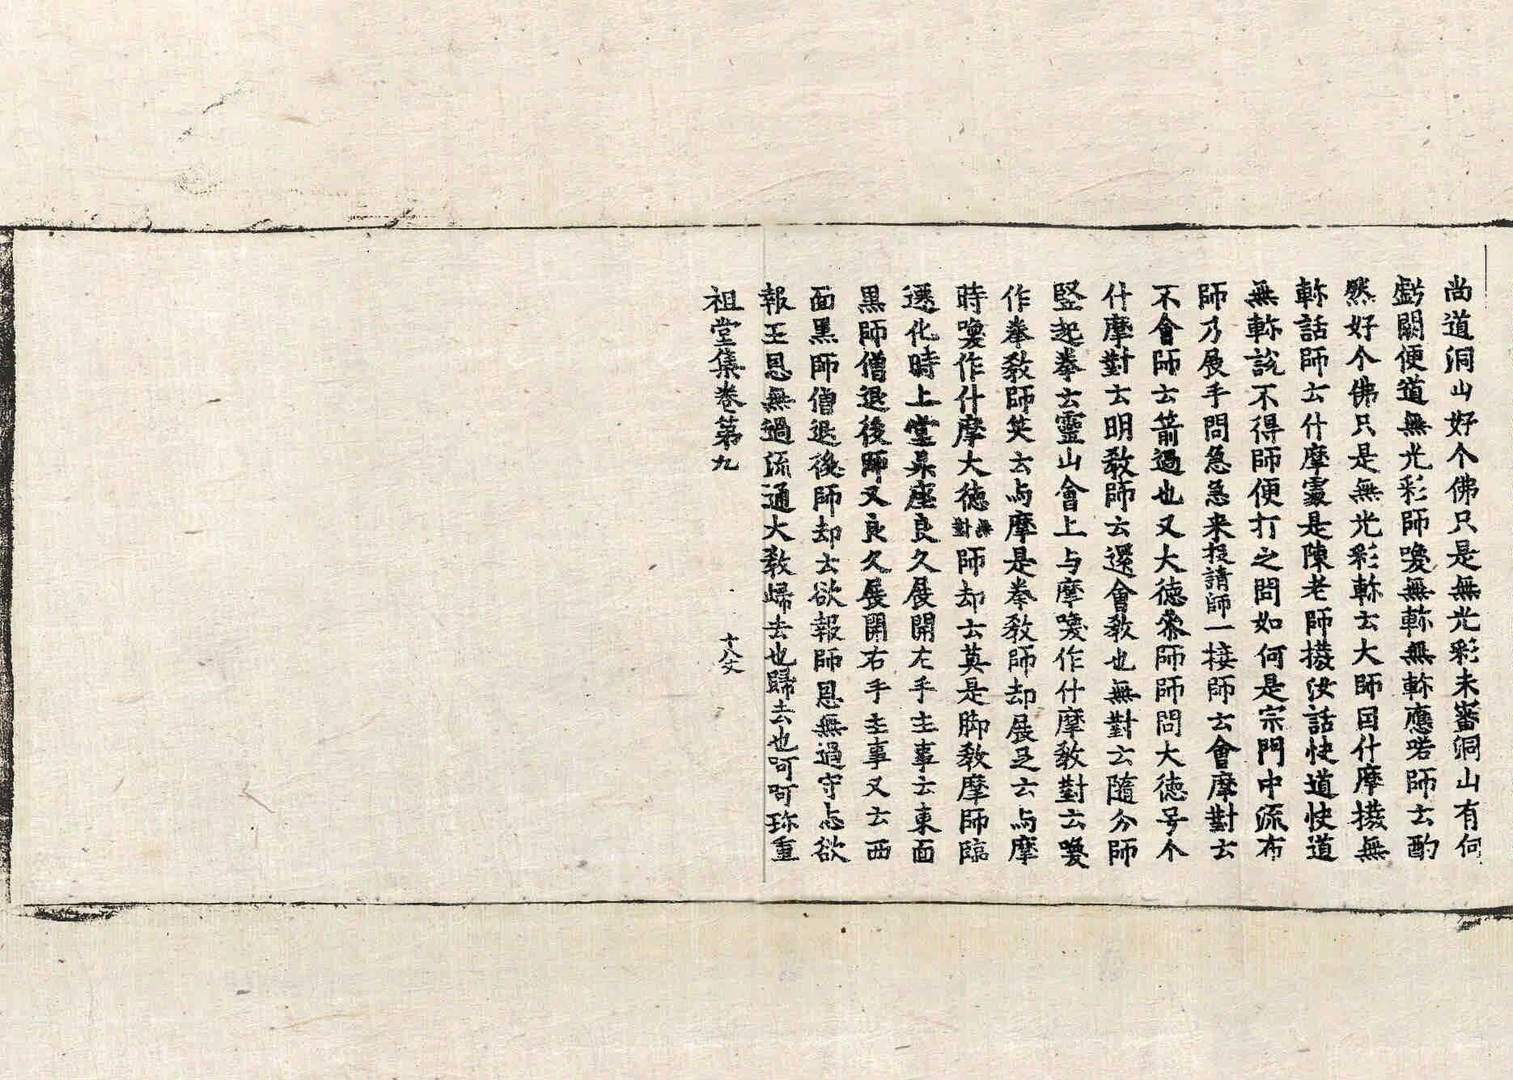 尚道洞山好个佛只是無光彩未審洞山有何
虧闕便道無光彩師喚無軫無軫應喏師云酌
然好个佛只是無光彩軫云大師因什摩撥無
軫話師云什摩處是陳老師撥汝話快道快道
無軫說不得師便打之問如何是宗門中流布
師乃展手問急急来投請師一接師云會摩對云
不會師云箭過也又大德叅師師問大德号个
什摩對云明教師云還會教也無對云隨分師
竪起拳云靈山會上与摩喚作什摩教對云喚
作拳教師笑云与摩是拳教師却展足云与摩
時喚作什摩大德無對師却云莫是脚教摩師臨
遷化時上堂昇座良久展開左手主事云東面
黒師僧退後師又良久展開右手主事又云西
面黒師僧退後師却云欲報師恩無過守志欲
報王恩無過流通大教歸去也歸去也呵呵珎重
祖堂集卷第九
十八丈